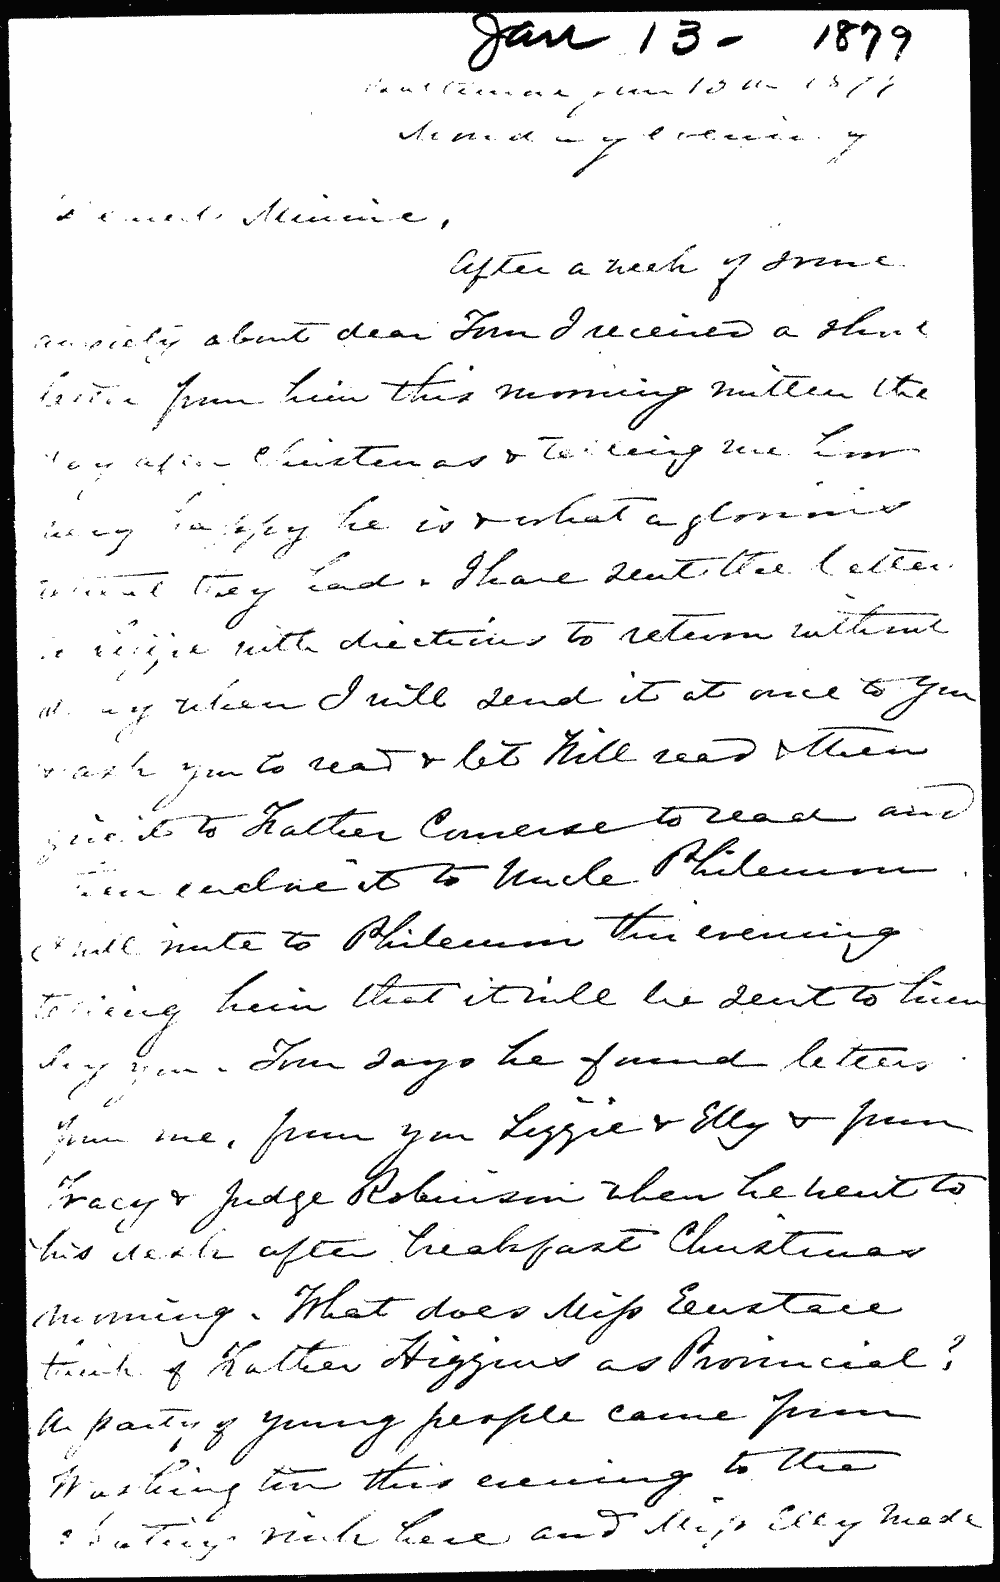 Jan 13 - 1879
Baltimore Jan 13th 1879
Monday evening
Dearest Minnie,
After a week of some
anxiety about dear Tom I received a short
letter from him this morning written the
day after Christmas & telling me how
very happy he is & what a glorious
they had. I have sent the letter
to Lizzie with directions to return without
delay when I will send it at once to you
& ask you to read & let Will read & then
give it to Father Converse to read and
then enclose it to Uncle Philemon.
I will write to Philemon this evening
telling him that it will be sent to him
by you. Tom says he found letters
from me, from you Lizzie & Elly & from
Tracy & Judge Robinson when he went to
his desk after breakfast Christmas
morning. What does Miss Eustace
think of Father Higgins as Provincial?
A party of young people came from
Washington this evening to the
skating rink here and Miss Elly made